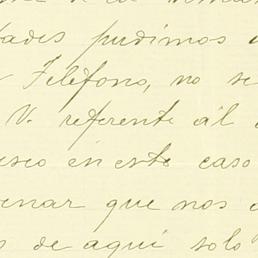 pudimos
Teléfono, no se
V. referente al
en este caso
enar que nos
de aquí solo